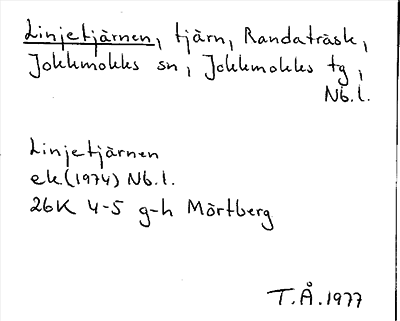 Linjetjärnen, tjärn, Randaträsk,
Jokkmokks sn, Jokkmokks tg,
Nb.l.
Linjetjärnen
ek(1974) Nb.l.
26K 4-5 g-h Mörtberg
T.Å.1977